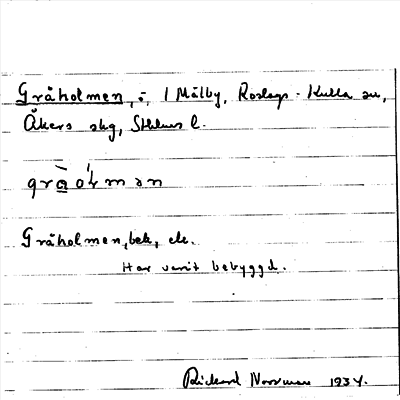 Gråholmen, ö, 1 Målby, Roslags-Kulla sn,
Åkers skg, Sthlms l.
gràɷ́rmən
Gråholmen, bek, ek.
Har varit bebyggd.
Rickard Norrman 1934.